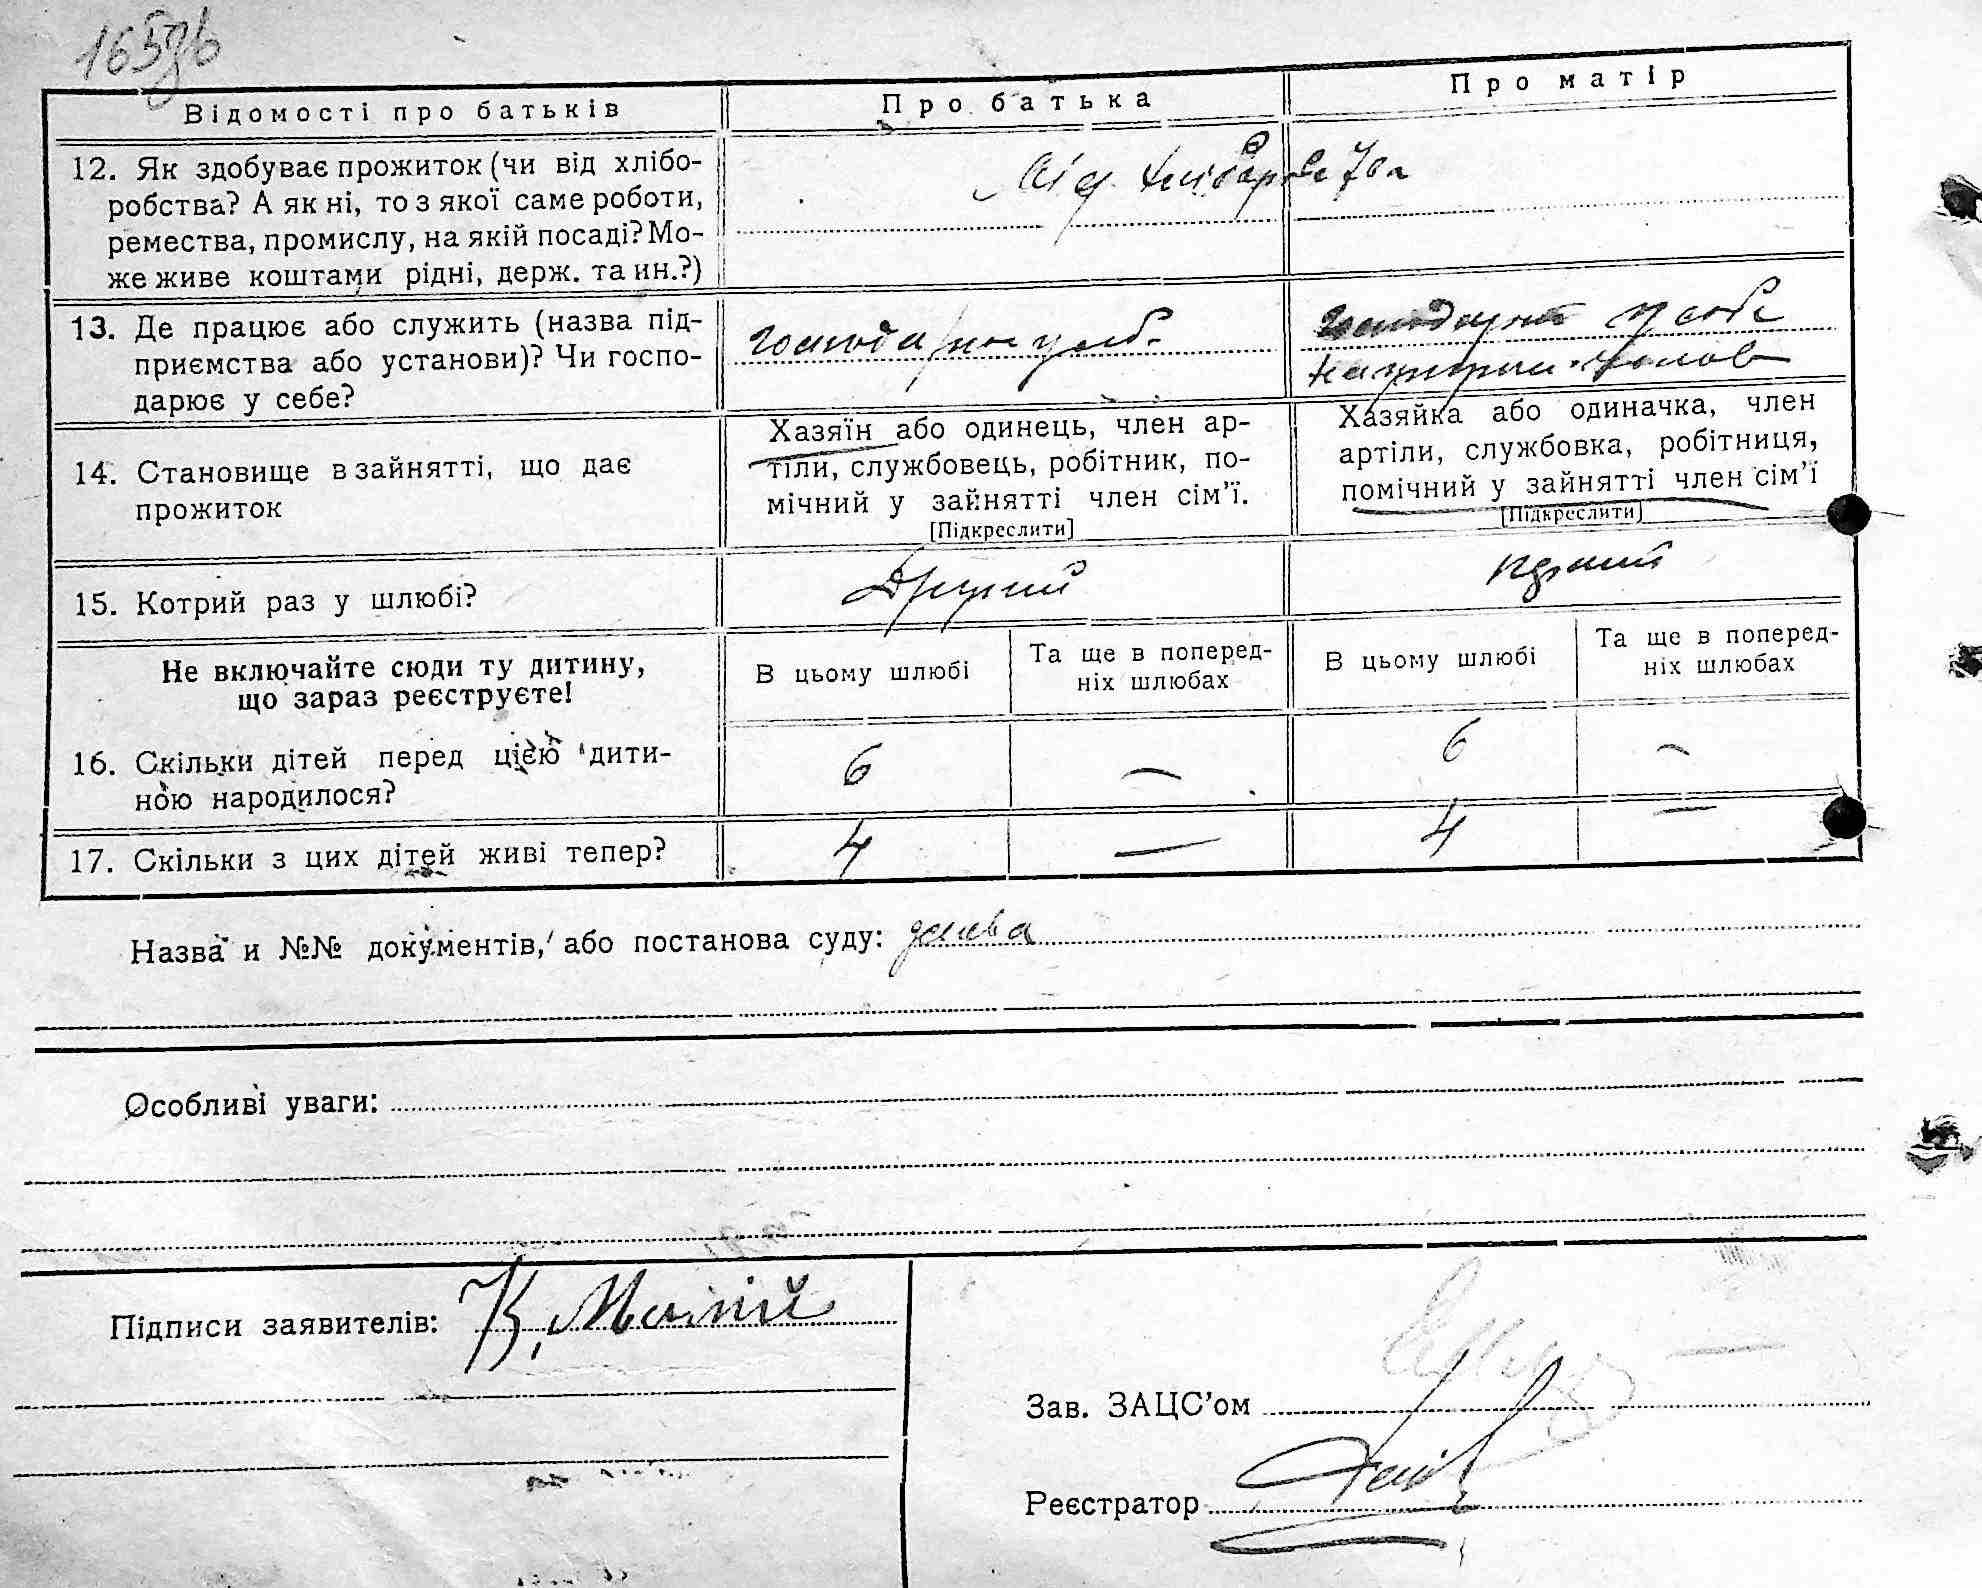 165зв
Відомості про батьків
Про батька
Про матір
12. Як здобуває прожиток (чи від хлібо-
робства? А як ні, то з якої саме роботи,
ремества, промислу, на якій посаді? Мо-
же живе коштами рідні, держ. та ин.?)
від хліборобства
13. Де працює або служить (назва під-
приємства або установи)? Чи госпо-
дарює у себе?
14. Становище в зайнятті, що дає
прожиток
Хазяїн або одинець, член ар-
тіли, службовець, робітник, по-
мічний у зайнятті член сім'ї.
[Підкреслити]
Хазяйка або одиначка, член
артіли, службовка, робітниця,
помічний у зайнятті член сім'ї
[Підкреслити]
15. Котрий раз у шлюбі?
Другий
Не включайте сюди ту дитину,
що зараз реєструєте!
В цьому шлюбі
Та ще в поперед-
ніх шлюбах
В цьому шлюбі
Та ще в поперед-
ніх шлюбах
16. Скільки дітей перед цією дити-
ною народилося?
6
—
6
—
17. Скільки з цих дітей живі тепер?
4
—
4
—
Назва и №№ документів, або постанова суду:
Особливі уваги:
Підписи заявителів: К. Малій
Зав. ЗАЦС'ом
Реєстратор